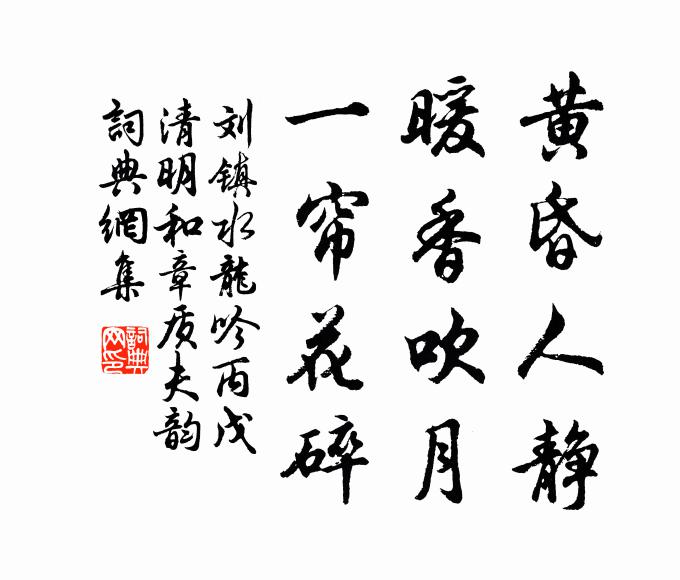 黄昏人静
暖香吹月
一帘花碎
刘镇水龍吟丙戌
清明和章质夫韵
詞典網集
詞典網印